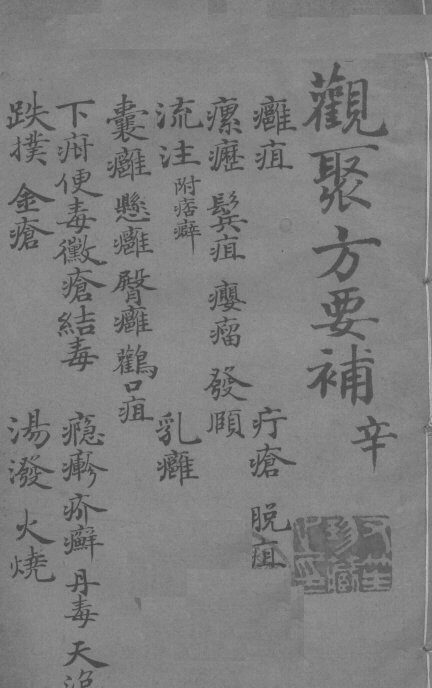 觀聚方要補 辛
癰疽 疔瘡 脱疽
瘰癧 鬂疽 癭瘤 發頤
流注 附痞癖 乳癰
囊癰 懸癰 臀癰 鸛口疽
下疳 便毒 黴瘡 結毒 癮疹 疥癬 丹毒 天泡
跌撲 金瘡 湯潑 火燒